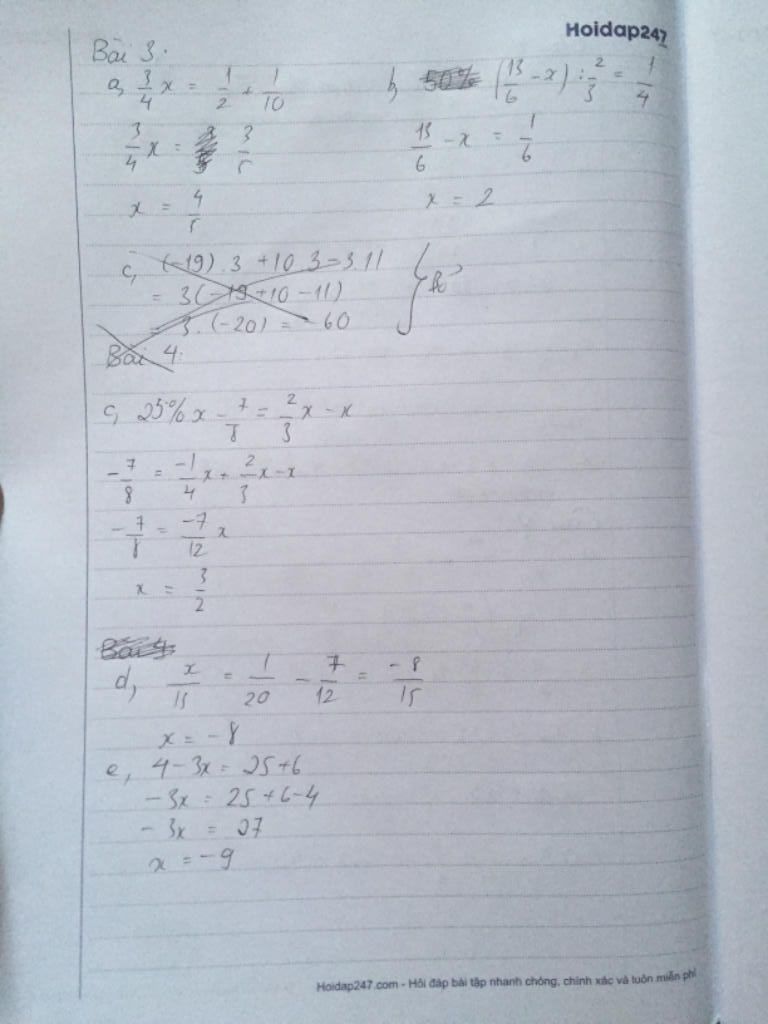 Hoidap247
Bài 3:
a, 3/4 x = 1/2 + 1/10
3/4 x = 3/5
x = 4/5
b, 50% (13/6 - x) : 2/3 = 1/4
13/6 - x = 1/6
x = 2
c, (-19) . 3 + 10 . 3 = 3.11
= 3(-19+10-11)
= 3. (-20) = -60
Bài 4:
c, 25% x - 7/8 = 2/3 x - x
-7/8 = -1/4 x + 2/3 x - x
-7/8 = -7/12 x
x = 3/2
Bài 4
d, x/15 = 1/20 - 7/12 = -8/15
x = -8
e, 4 - 3x = 25+6
-3x = 25+6-4
-3x = 27
x = -9
Hoidap247.com - Hỏi đáp bài tập nhanh chóng, chính xác và luôn miễn phí